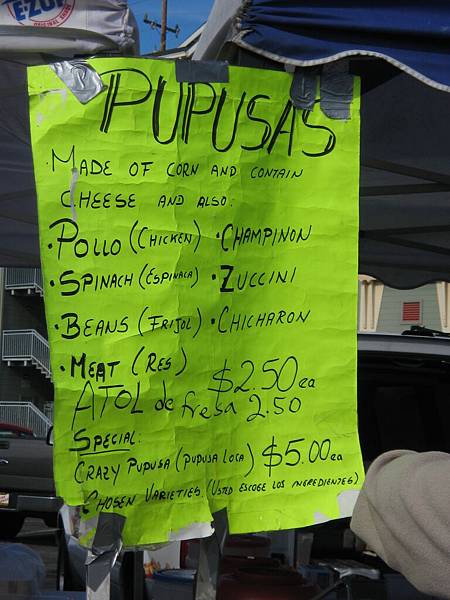 E-Z UP
ORIGINAL
PUPUSAS
·MADE OF CORN AND CONTAIN
CHEESE AND ALSO:
·POLLO (CHICKEN) ·CHAMPINON
·SPINACH (ESPINACA) ·ZUCCINI
·BEANS (FRIJOL) ·CHICHARON
·MEAT (RES)
$2.50 ea
ATOL de fresa 2.50
SPECIAL:
CRAZY PUPUSA (PUPUSA LOCA) $5.00 ea
CHOSEN VARIETIES (USTED ESCOGE LOS INGREDIENTES)